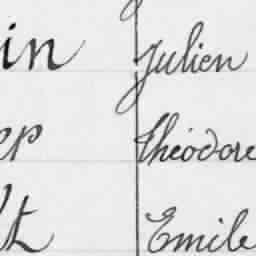 in Julien
ep Théodore
lt Emile